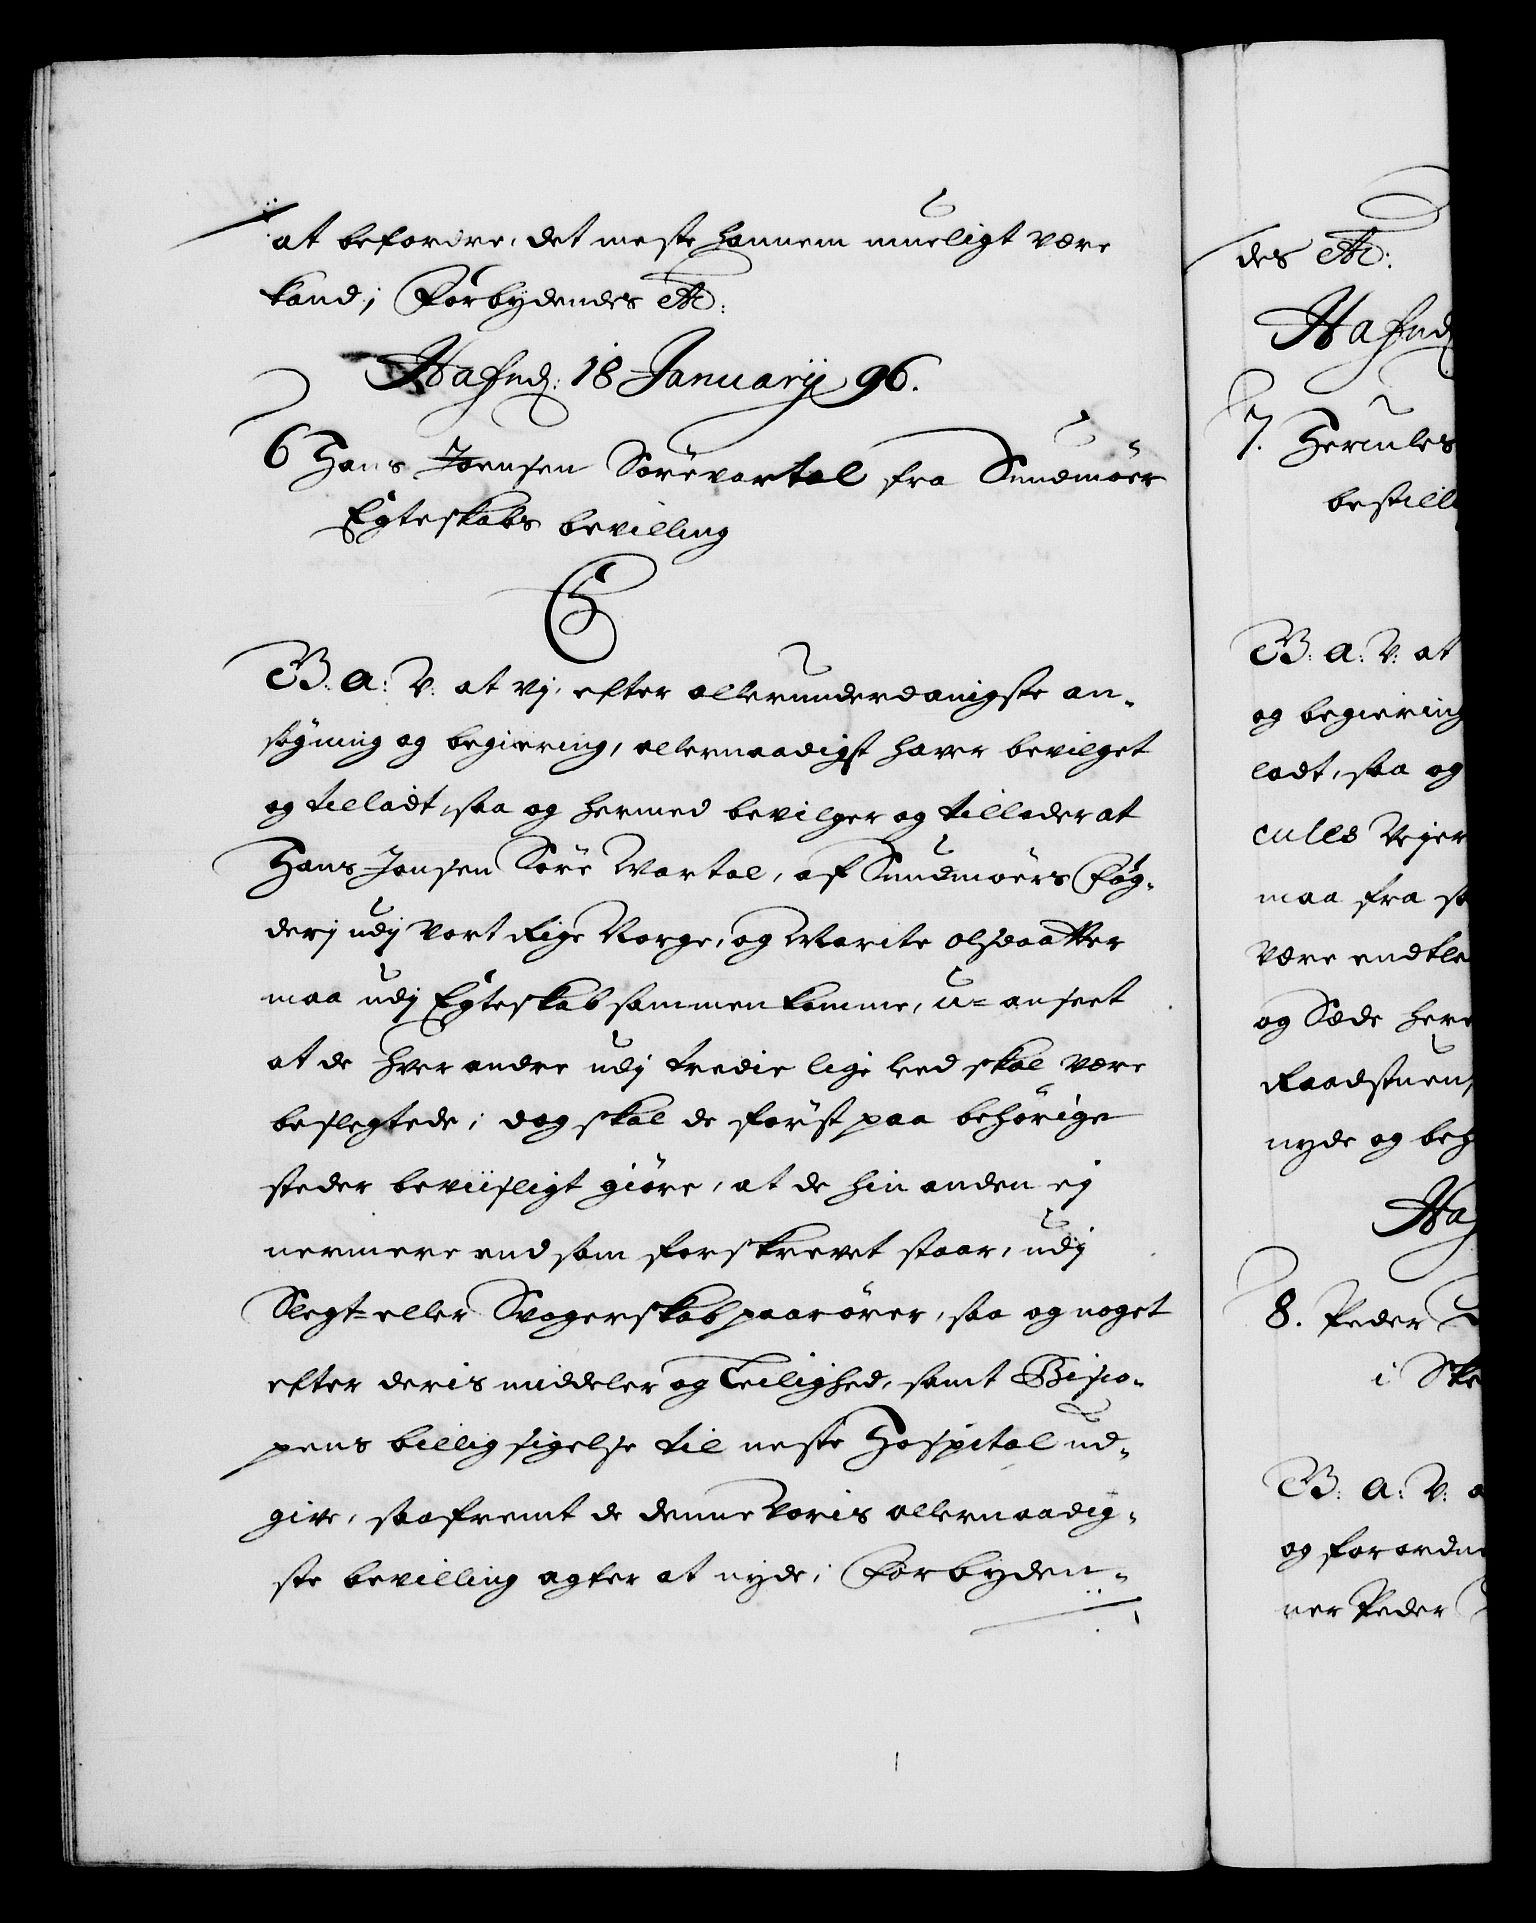 at befordre, det meste hannem mueligt være
kand; Forbydendes etc:
Hafnd: 18 January 96.
6 Hans Joensen Sörevartal fra Sundmöer
Egteskabs bevilling
C5
G. a: V: at vj, efter allerunderdanigste an-
søgning og begiering, allernaadigst haver bevilget
og tilladt, saa og hermed bevilger og tillader at
Hans Jonsen Söre Vartal, af Sundmöers Fog-
derj udj vort Rige Norge, og Marite olsdaatter
maa udj Egteskab sammen komme, u-anseet
at de hver andre udj tredie lige leed skal være
beslegtede; dog skal de först paa behörige
steder beviisligt giöre, at de hin anden ej
nermere end som forskrevet staar, udj
Slegt- eller Svogerskab paarörer, saa og noget
efter deris middeler og Leilighed, samt Bisco-
pens billig sigelse til neste Hospital ud-
give, saafremt de denne voris allernaadig-
ste bevilling agter at nyde; Forbyden-
des etc:
Hafnd
7. Hercules
bestill
G. a: V: at
og begiering
ladt, saa og
cules Vejer
maa fra
være
og Sæde here
Raadstuen,
nyde og beh
Haf
8. Peder
i
G. a: V:
og forordn
ner Peder